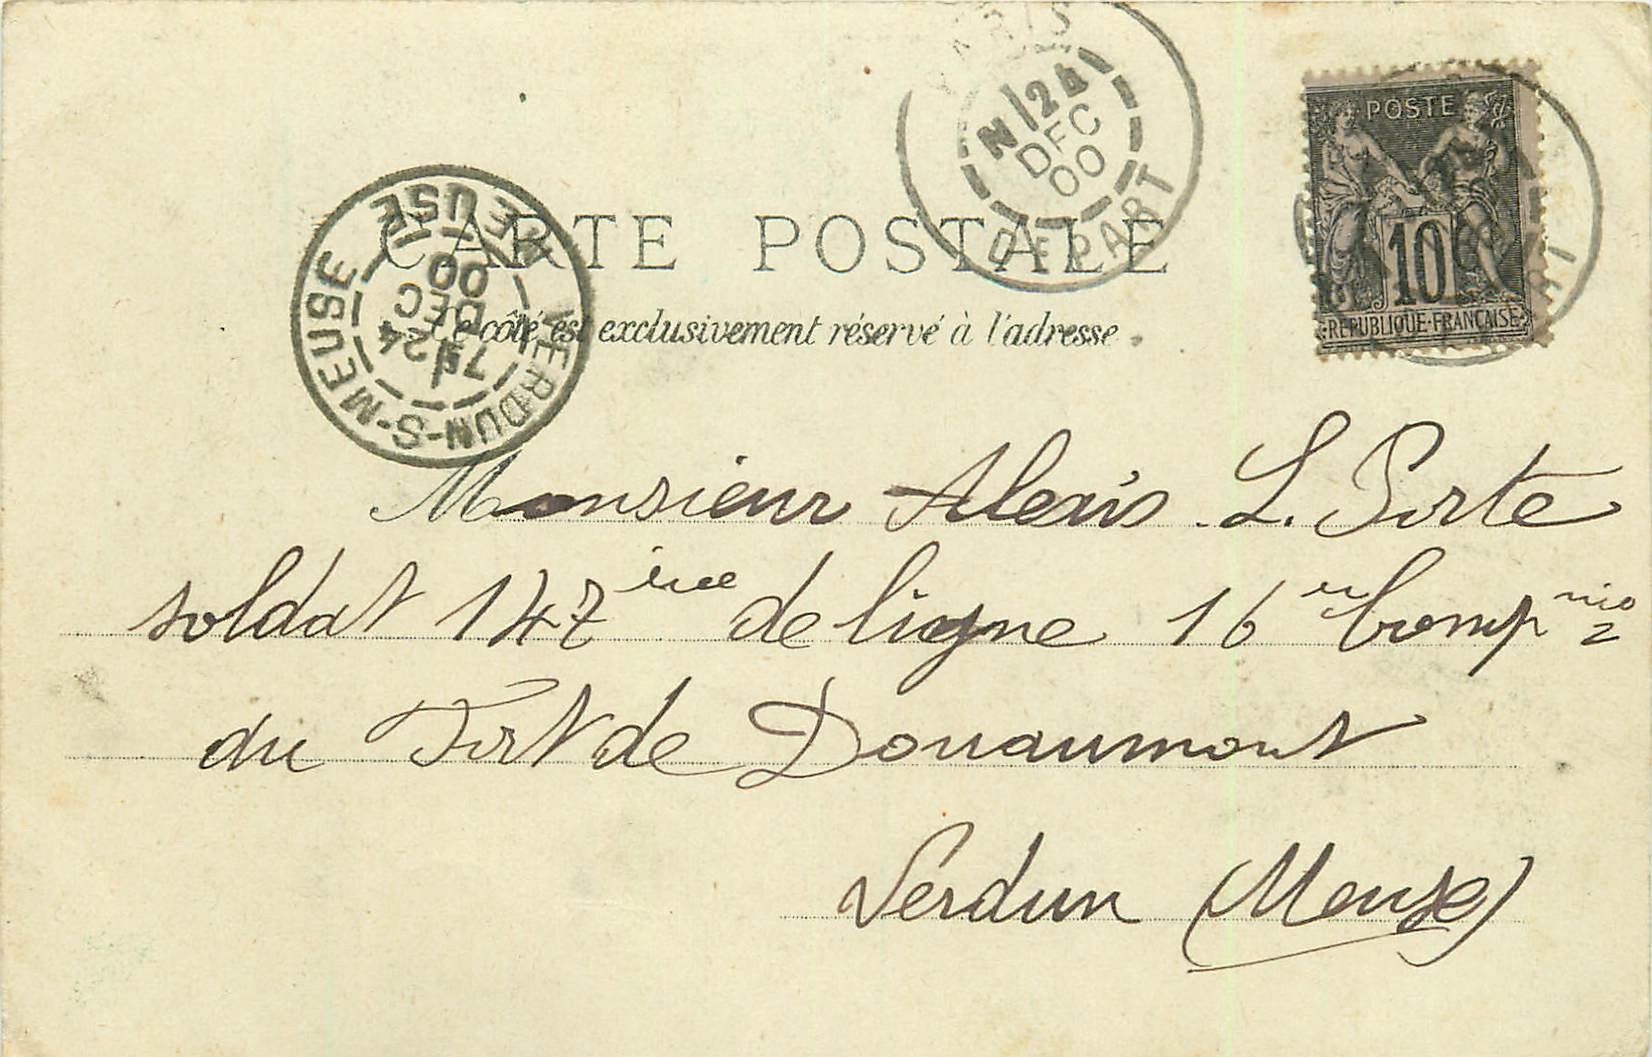 PARIS
N 24
DEC
00
DEPART
POSTE
10
REPUBLIQUE FRANCAISE
CARTE POSTALE
Ce côté est exclusivement réservé à l'adresse.
VERDUN-S-MEUSE
MEUSE
7
24
DEC
00
Monsieur Alexis L. Porte
soldat 147ième de ligne 16 Comp nie
du Fort de Douaumont
Verdun (Meuse)